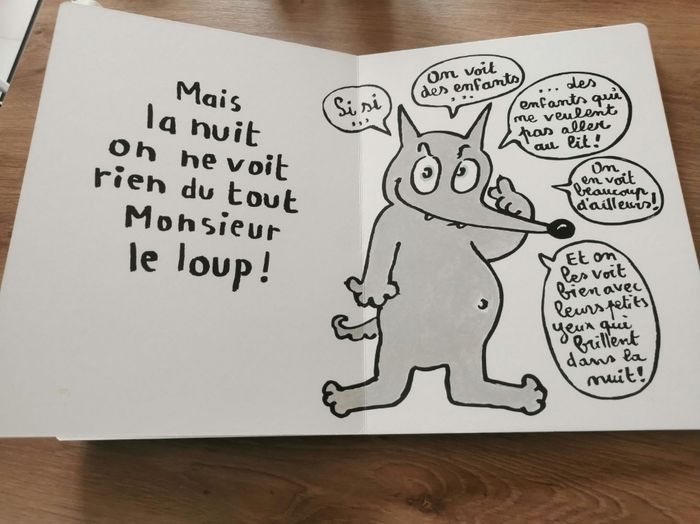 Mais
la nuit
on ne voit
rien du tout
Monsieur
le loup!
Si si
...
On voit
des enfants
...
... des
enfants qui
ne veulent
pas aller
au lit!
On
en voit
beaucoup
d'ailleurs!
Et on
les voit
bien avec
leurs petits
yeux qui
brillent
dans la
nuit!